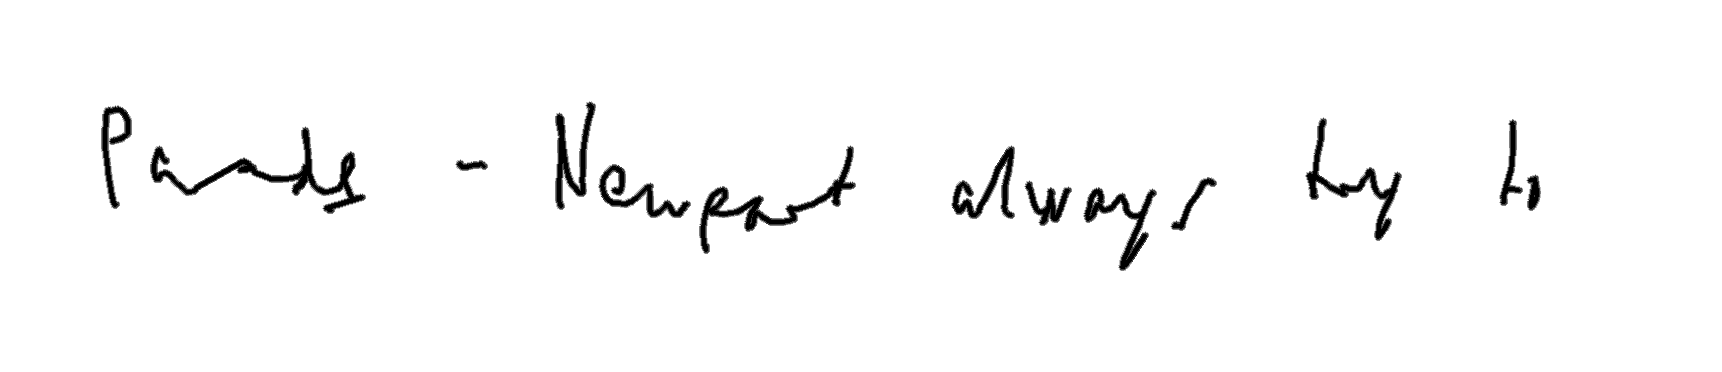 Parade - Newport always try to